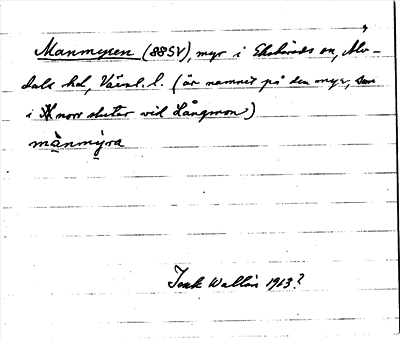 Manmyren (88SV), myr i Ekshärads sn, Älv-
dals hd, Värml. l. (är namnet på den myr, som
i norr slutar vid Långmon)
mànmỳra
Torsk Wallin 1913?